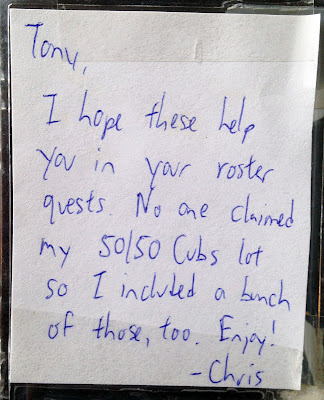 Tony,
I hope these help
you in your roster
quests. No one claimed
my 50/50 Cubs lot
so I included a bunch
of those, too. Enjoy!
-Chris